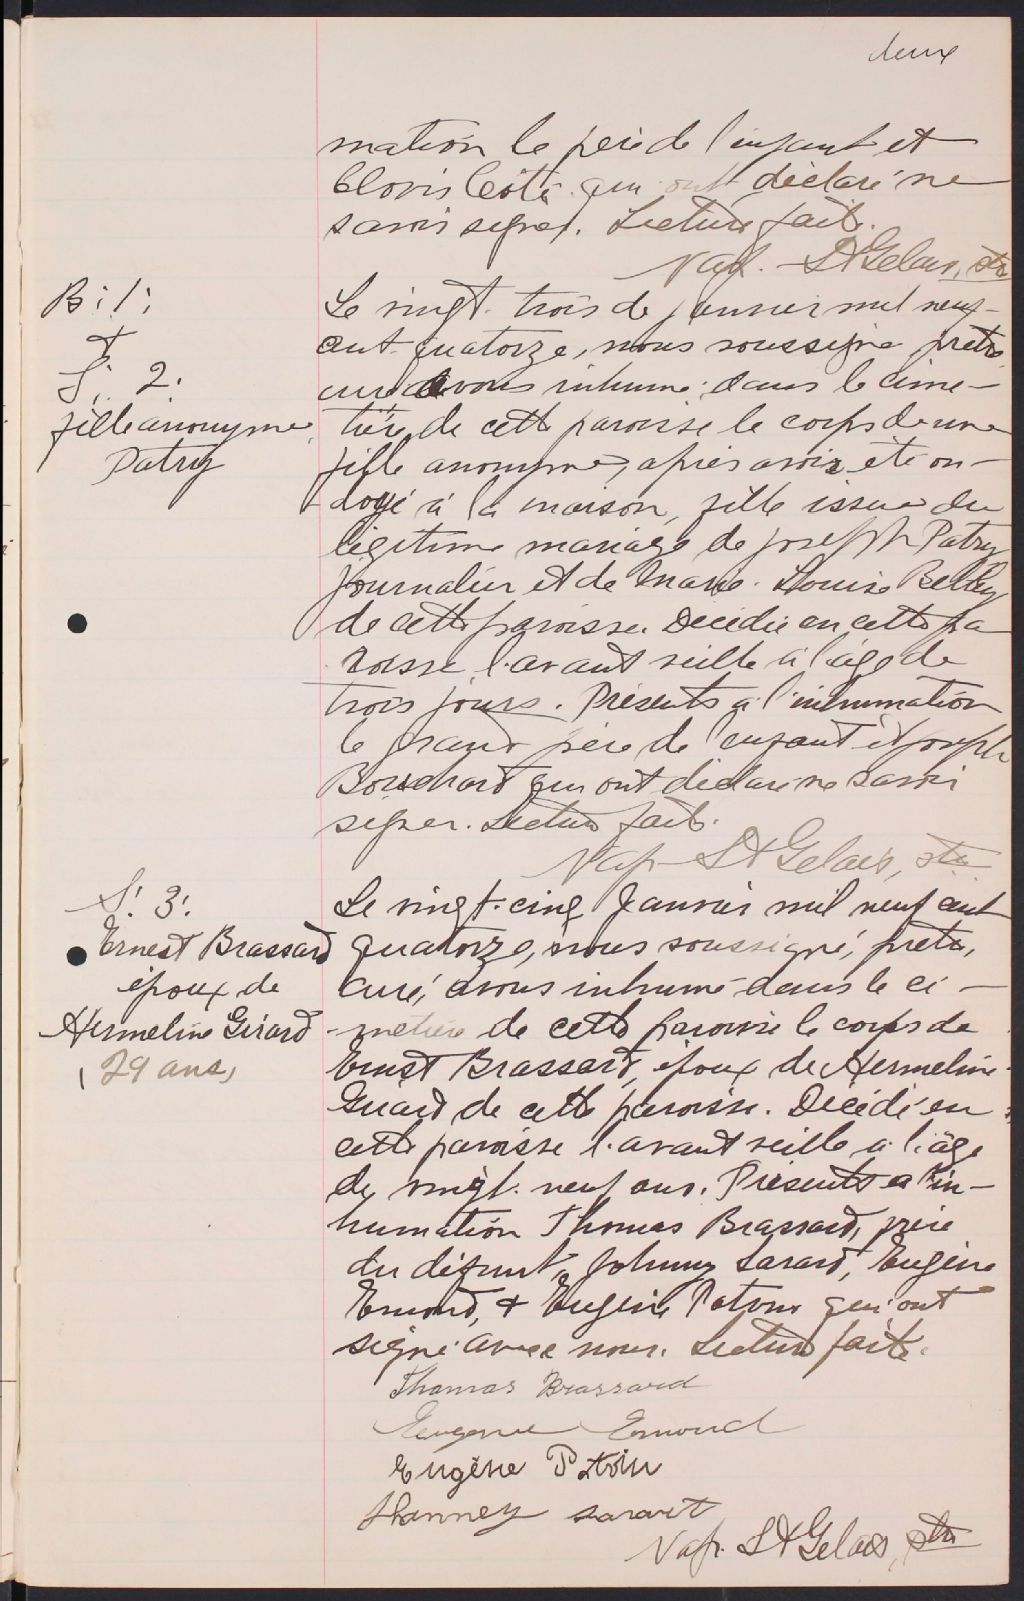 deux
mation le père de l'enfant et
Clovis Coté qui ont déclaré ne
savoir signer. Lecture faite.
Nap. St Gelais, ptre
B. 1.
+
S. 2.
fille anonyme
Patry
Le vingt-trois de janvier mil neuf-
cent-quatorze, nous soussigné prêtre
curé avons inhumé dans le cime-
tière de cette paroisse le corps de une
fille anonyme, après avoir été on-
doyé à la maison, fille issue du
légitime mariage de Joseph Patry
journalier et de Marie-Louise Belley
de cette paroisse. Décédée en cette pa
roisse l'avant veille à l'âge de
trois jours. Présents à l'inhumation
le grand père de l'enfant et Joseph
Bouchard qui ont déclaré ne savoir
signer. Lecture faite.
Nap. St Gelais, ptre
S. 3.
Ernest Brassard
époux de
Hermeline Girard
29 ans,
Le vingt-cinq Janvier mil neuf cent
quatorze, nous soussigné, prêtre,
curé, avons inhumé dans le ci-
metière de cette paroisse le corps de
Ernest Brassard, époux de Hermeline
Girard de cette paroisse. Décédé en
cette paroisse l'avant veille à l'âge
de vingt-neuf ans. Présents a l'in-
humation Thomas Brassard, père
du défunt, Johnny Savard, Eugène
Emond, & Eugène Potvin qui ont
signé avec nous. Lecture faite.
Thomas Brassard
Eugene Emond
Eugène Potvin
savart
Nap. St Gelais, ptre